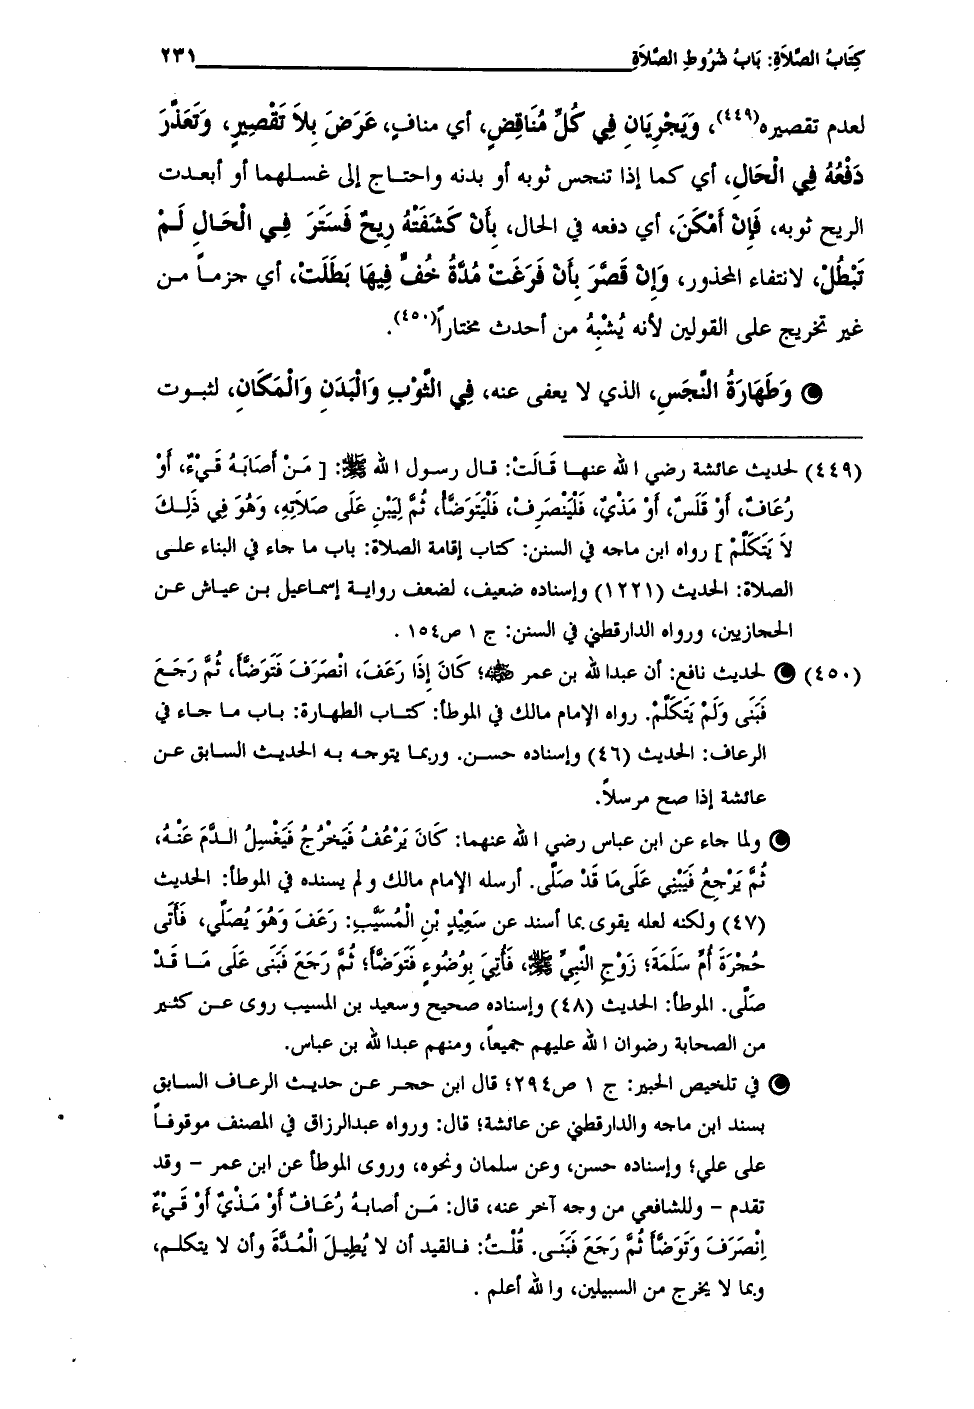 كِتَابُ الصَّلاَةِ: بَابُ شُرُوطِ الصَّلاَةِ ٢٣١
لعدم تقصيره(٤٤٩)، وَيَجْرِيَانِ فِي كُلِّ مُنَاقِضٍ، أي منافٍ، عَرَضَ بِلاَ تَقْصِيرٍ، وَتَعَذَّرَ
دَفْعُهُ فِي الْحَالِ، أي كما إذا تنجس ثوبه أو بدنه واحتاج إلى غسلهما أو أبعدت
الريح ثوبه، فَإِنْ أَمْكَنَ، أي دفعه في الحال، بِأَنْ كَشَفَتْهُ رِيحٌ فَسَتَرَ فِي الْحَالِ لَمْ
تَبْطُلْ، لانتفاء المحذور، وَإِنْ قَصَّرَ بِأَنْ فَرَغَتْ مُدَّةُ خُفٍّ فِيهَا بَطَلَتْ، أي جزماً من
غير تخريج على القولين لأنه يُشْبِهُ من أحدث مختاراً(٤٥٠).
وَطَهَارَةُ النَّجَسِ، الذي لا يعفى عنه، فِي الثَّوْبِ وَالْبَدَنِ وَالْمَكَانِ، لثبوت
(٤٤٩) لحديث عائشة رضي الله عنها قَالَتْ: قال رسول الله ﷺ: [ مَنْ أَصَابَهُ قَيْءٌ، أَوْ
رُعَافٌ، أَوْ قَلَسٌ، أَوْ مَذْيٌ، فَلْيَنْصَرِفْ، فَلْيَتَوَضَّأْ، ثُمَّ لِيَبْنِ عَلَى صَلاَتِهِ، وَهُوَ فِي ذَلِكَ
لاَ يَتَكَلَّمْ ] رواه ابن ماجه في السنن: كتاب إقامة الصلاة: باب ما جاء في البناء على
الصلاة: الحديث (١٢٢١) وإسناده ضعيف، لضعف رواية إسماعيل بن عياش عن
الحجازيين، ورواه الدارقطني في السنن: ج ١ ص١٥٤ .
(٤٥٠) لحديث نافع: أن عبدالله بن عمر ﷺ؛ كَانَ إِذَا رَعَفَ، انْصَرَفَ فَتَوَضَّأَ، ثُمَّ رَجَعَ
فَبَنَى وَلَمْ يَتَكَلَّمْ. رواه الإمام مالك في الموطأ: كتاب الطهارة: باب ما جاء في
الرعاف: الحديث (٤٦) وإسناده حسن. وربما يتوجه به الحديث السابق عن
عائشة إذا صح مرسلاً.
ولما جاء عن ابن عباس رضي الله عنهما: كَانَ يَرْعُفُ فَيَخْرُجُ فَيَغْسِلُ الدَّمَ عَنْهُ،
ثُمَّ يَرْجِعُ فَيَبْنِي عَلَى مَا قَدْ صَلَّى. أرسله الإمام مالك ولم يسنده في الموطأ: الحديث
(٤٧) ولكنه لعله يقوى بما أسند عن سَعِيْدِ بْنِ الْمُسَيَّبِ: رَعَفَ وَهُوَ يُصَلِّي، فَأَتَى
حُجْرَةَ أُمِّ سَلَمَةَ؛ زَوْجِ النَّبِيِّ ﷺ، فَأُتِيَ بِوُضُوءٍ فَتَوَضَّأَ؛ ثُمَّ رَجَعَ فَبَنَى عَلَى مَا قَدْ
صَلَّى. الموطأ: الحديث (٤٨) وإسناده صحيح وسعيد بن المسيب روى عن كثير
من الصحابة رضوان الله عليهم جميعاً، ومنهم عبدالله بن عباس.
في تلخيص الحبير: ج ١ ص٢٩٤؛ قال ابن حجر عن حديث الرعاف السابق
بسند ابن ماجه والدارقطني عن عائشة؛ قال: ورواه عبدالرزاق في المصنف موقوفاً
على علي؛ وإسناده حسن، وعن سلمان ونحوه، وروى الموطأ عن ابن عمر – وقد
تقدم – وللشافعي من وجه آخر عنه، قال: مَنْ أصابهُ رُعَافٌ أَوْ مَذْيٌ أَوْ قَيْءٌ
اِنْصَرَفَ وَتَوَضَّأَ ثُمَّ رَجَعَ فَبَنَى. قُلْتُ: فالقيد أن لا يُطِيلَ الْمُدَّةَ وأن لا يتكلم،
وبما لا يخرج من السبيلين، والله أعلم .